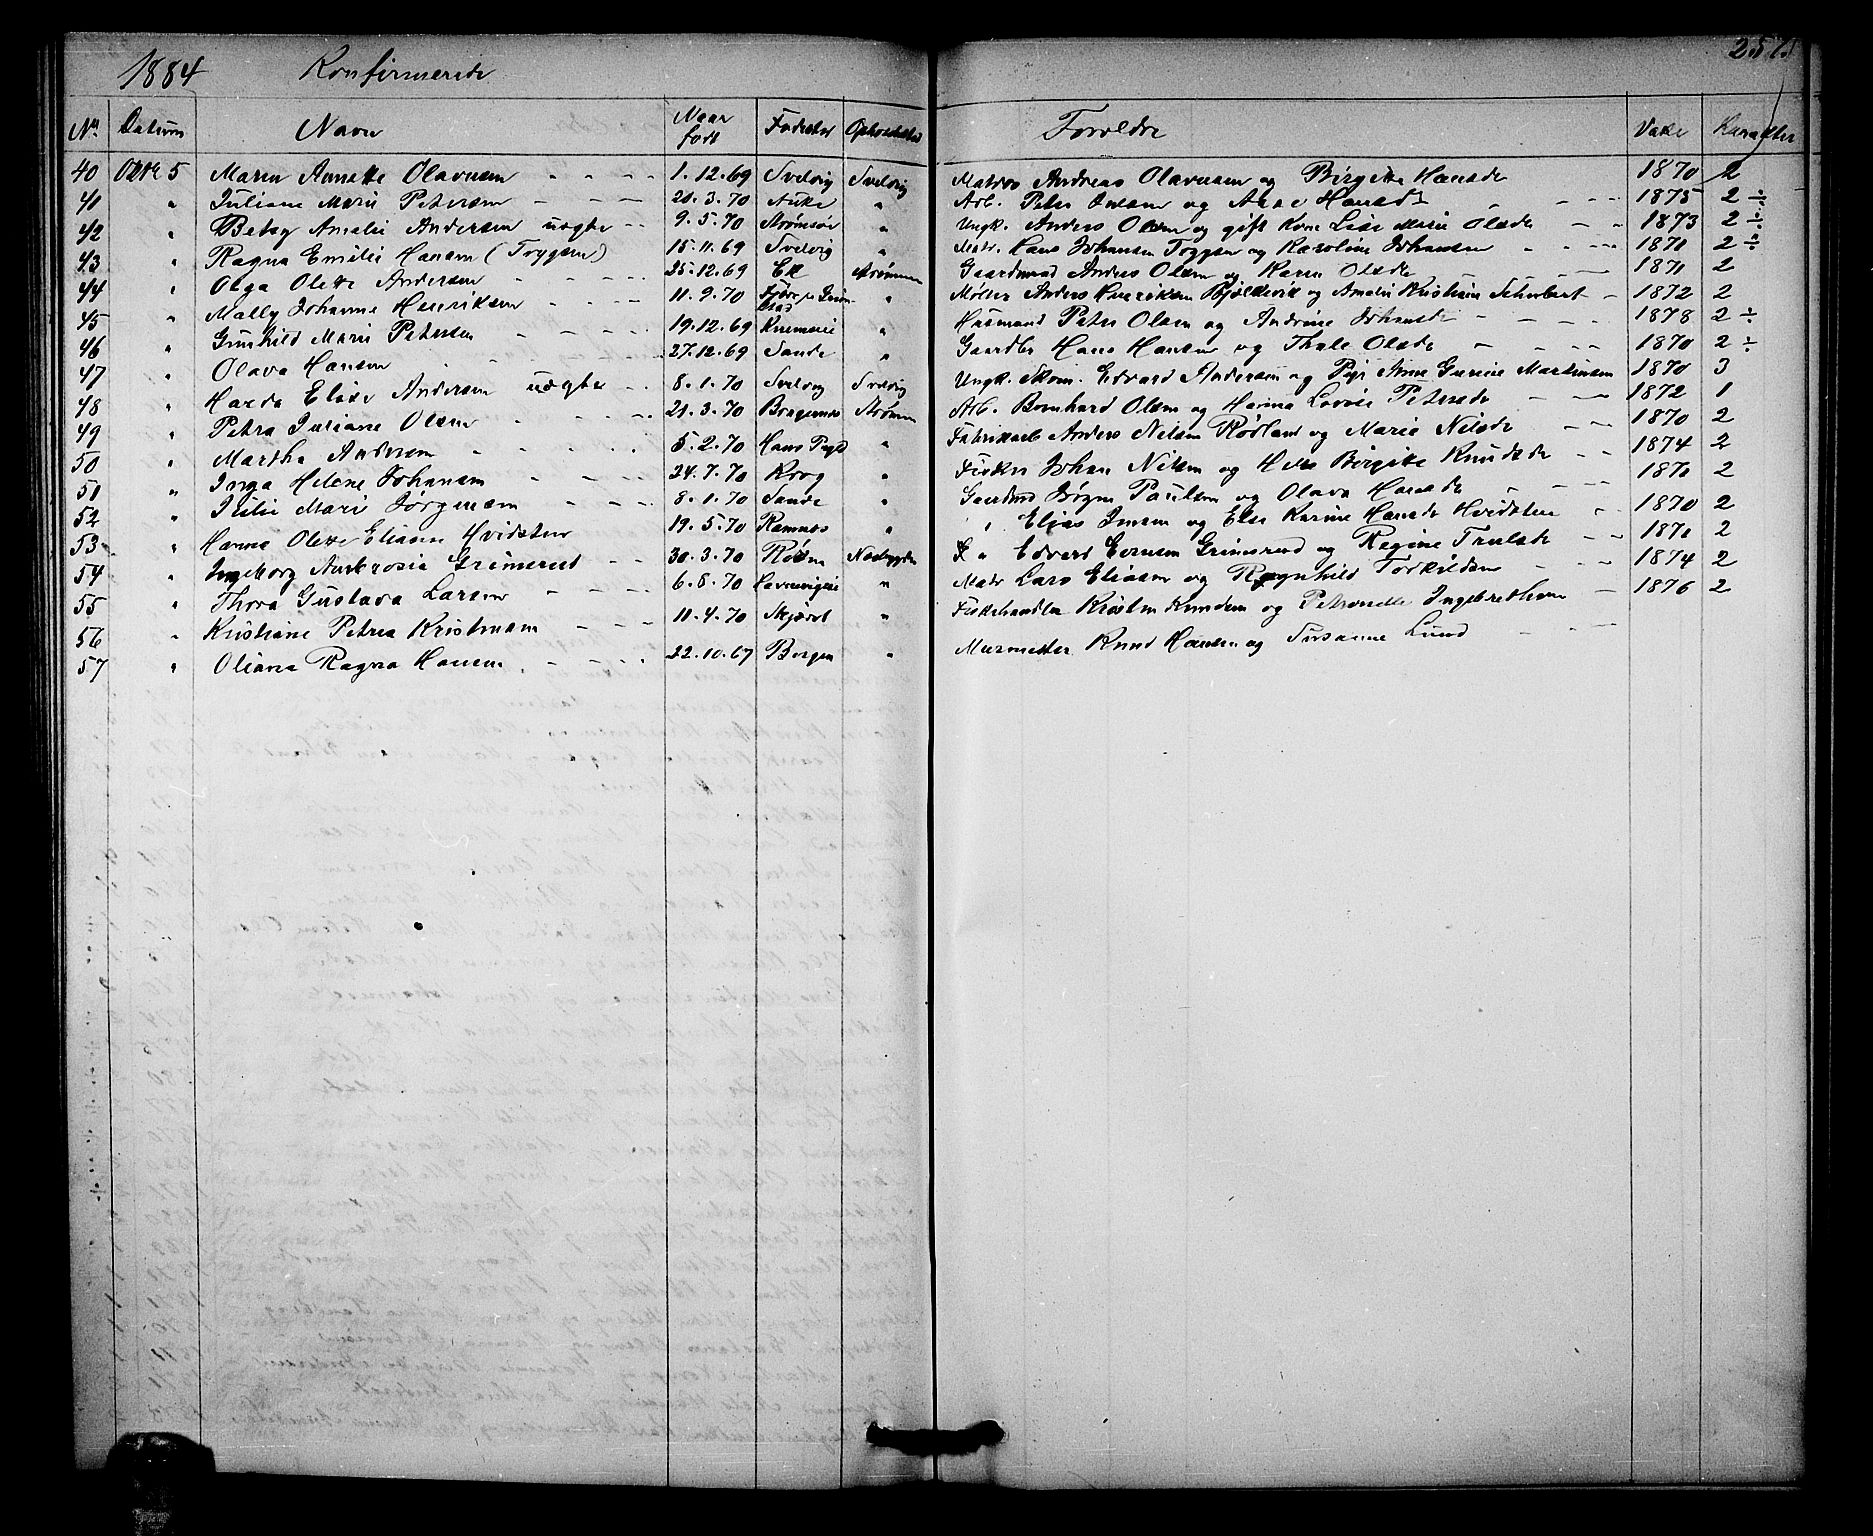 1884 Konfirmerede 257.
No Datum Navn Naar født Fødested Opholdssted Forældre Vacc. Karakter
40 Oktr 5 Maren Annette Olavesen 1.12.69 Svelvig Svelvig Matros Andreas Olavesen og Birgitte Hansdr 1870 2
41 " Juliane Marie Petersen 21.3.70 " Arb. Peter og Hansdr 1875 2 ÷
42 " Betsy Amalie Andersen uægte 9.5.70 Strømsø " Ungk. Anders Olsen og gift Kone Lise Marie Olsdr 1873 2 ÷
43 " Ragna Emilie Hansen (Tryggsen) 15.11.69 Svelvig " Matr. Hans Johansen Tryggsen og Karoline Johansen 1871 2 ÷
44 " Olga Olette Andersen 25.12.69 Ek Strømmen Gaardmand Anders Olsen og Karen Olsdr 1871 2
45 " Mally Johanne Henriksen 11.9.70 " Møller Anders Henriksen og Amalie Kristiane Schubert 1872 2
46 " Gunhild Marie Petersen 19.12.69 " Husmand Peter Olsen og Andrine Johansdr 1878 2 ÷
47 " Olava Hansen 27.12.69 Sande " Gaardbr Hans Hansen og Thale Olsdr 1870 2 ÷
48 " Harda Elise Andersen uægte 8.1.70 Svelvig Svelvig Ungk. Skom. Edvard Andersen og Pige Anne Gurine Martinsen 1870 3
49 " Petra Juliane Olsen 21.3.70 Bragernes Strømm Arb. Bernhard Olsen og Hanna Lovise Petersdr 1872 1
50 " Martha Andersen 5.2.70 " Fabrikarb Anders Nilsen Rødland og Marie Nilsdr 1870 2
51 " Inga Helene Johansen 24.7.70 Krog " Fisker Johan Nilsen og Birgitte Knudsdr 1874 2
52 " Julie Marie Jørgensen 8.1.70 Sande " Gaardmd Jørgen Paulsen og Olava Hansdr 1871 2
53 " Hanna Olette Eliasen Hvidsten 19.5.70 Ramnes " " Elias Jensen og Else Karine Hansdr Hvidsten 1870 2
54 " Ingeborg Ambrosia Grimsrud 30.3.70 Røken Nesbygden " Edvard Evensen Grimsrud og Regine Trulsdr 1871 2
55 " Thora Gustava Larsen 6.8.70 " Matr Lars Eliasen og Ragnhild Torkildsen 1874 2
56 " Kristiane Petrea Kristensen 11.4.70 " Fiskehandler Kristen Knudsen og Petronelle Ingebrethsen 1876 2
57 " Oliana Ragna Hansen 22.10.67 Bergen " Murmester Knud Hansen og Susanne Lund